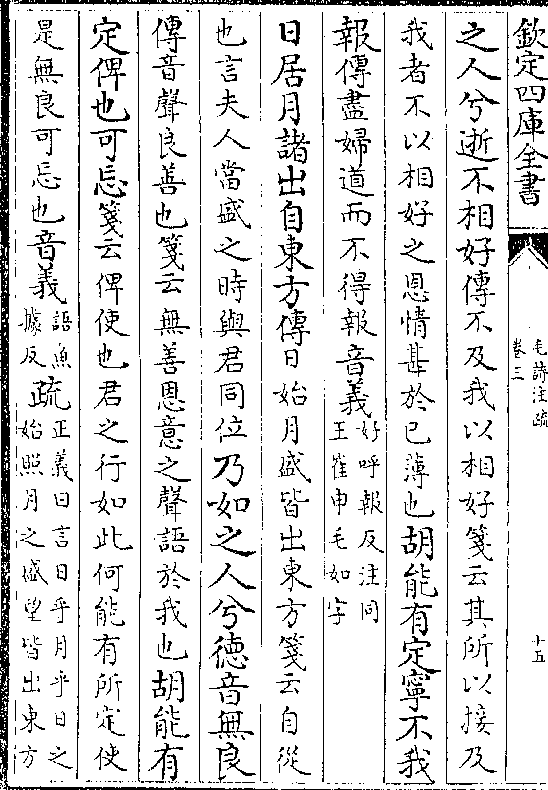 欽定四庫全書
毛詩注疏
卷三
十五
之人兮逝不相好傳不及我以相好箋云其所以接及
我者不以相好之恩情甚於已薄也胡能有定寧不我
報傳盡婦道而不得報音義
好呼報反注同
王崔申毛如字
日居月諸出自東方傳日始月盛皆出東方箋云自從
也言夫人當盛之時與君同位乃如之人兮德音無良
傳音聲良善也箋云無善恩意之聲語於我也胡能有
定俾也可忘箋云俾使也君之行如此何能有所定使
是無良可忘也音義
語魚
據反
疏
正義曰言日乎月乎日之
始照月之盛望皆出東方